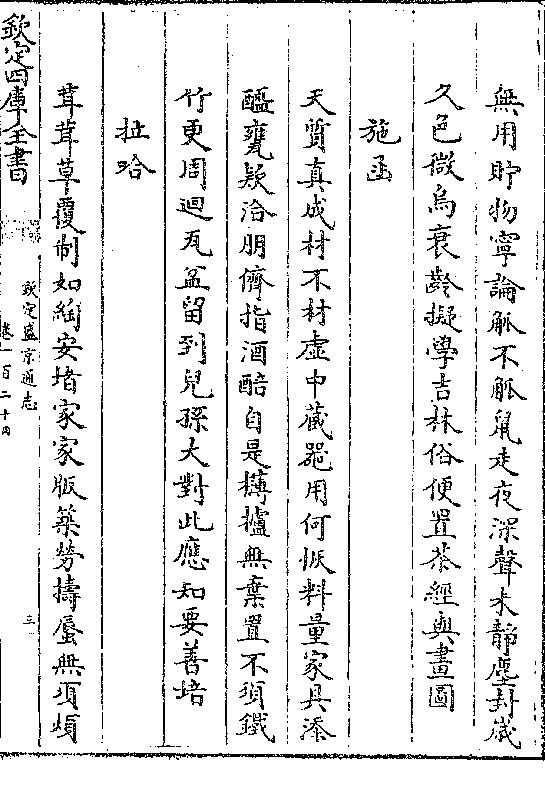 無用貯物寧論觚不觚鼠走夜深聲未靜塵封歲
久色微烏衰齡擬學吉林俗便置茶經與畫圖
施函
天質真成材不材虛中藏器用何恢料量家具添
醯甕欵洽朋儕指酒醅自是欂櫨無棄置不須鐵
竹更周迴瓦盆留到兒孫大對此應知要善培
拉哈
茸茸草覆制如綯安堵家家版築勞擣蜃無須煩
欽定四庫全書
欽定盛京通志
卷一百二十四
三